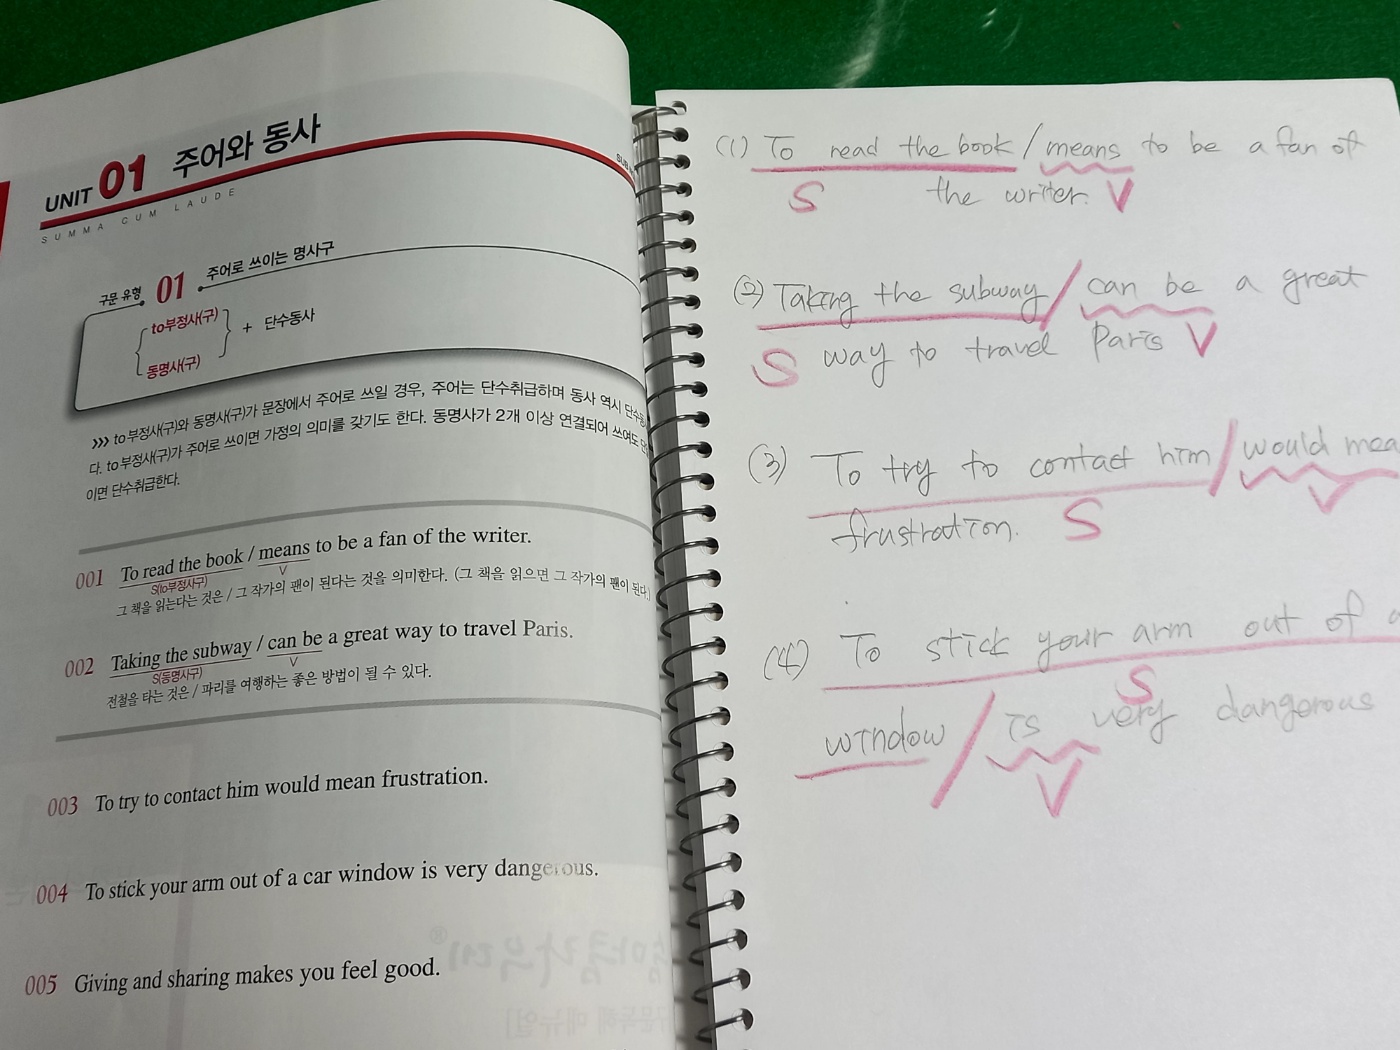 UNIT 01 주어와 동사
SUMMA CUM LAUDE
구문 유형 01 주어로 쓰이는 명사구
to부정사(구)
+ 단수동사
동명사(구)
>>> to부정사(구)와 동명사(구)가 문장에서 주어로 쓰일 경우, 주어는 단수취급하며 동사 역시
다. to부정사(구)가 주어로 쓰이면 가정의 의미를 갖기도 한다. 동명사가 2개 이상 연결되어 쓰여도
이면 단수취급한다.
001 To read the book / means to be a fan of the writer.
S(to부정사구) V
그 책을 읽는다는 것은 / 그 작가의 팬이 된다는 것을 의미한다. (그 책을 읽으면 그 작가의 팬이 된다.)
002 Taking the subway / can be a great way to travel Paris.
S(동명사구) V
전철을 타는 것은 / 파리를 여행하는 좋은 방법이 될 수 있다.
003 To try to contact him would mean frustration.
004 To stick your arm out of a car window is very dangerous.
005 Giving and sharing makes you feel good.
(1) To read the book / means to be a fan of
S the writer. V
(2) Taking the subway / can be a great
S way to travel Paris V
(3) To try to contact him / would mea
frustration. S V
(4) To stick your arm out of
S
window / is very dangerous
V